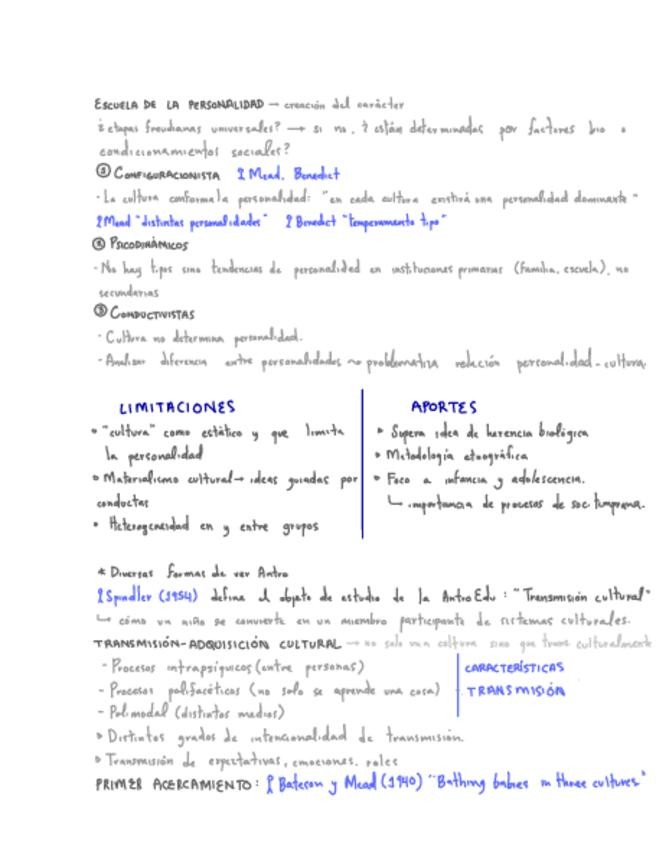 ESCUELA DE LA PERSONALIDAD → creación del carácter
¿etapas freudianas universales? → si no, ? están determinadas por factores bio o
condicionamientos sociales?
① CONFIGURACIONISTA Mead, Benedict
- La cultura conforma la personalidad: "en cada cultura existirá una personalidad dominante"
Mead "distintas personalidades" Benedict "temperamento tipo"
② PSICODINÁMICOS
- No hay tipos sino tendencias de personalidad en instituciones primarias (familia, escuela), no
secundarias
③ CONDUCTIVISTAS
- Cultura no determina personalidad.
- Analizar diferencia entre personalidades ~ problematiza relación personalidad-cultura
LIMITACIONES
• "cultura" como estático y que limita
la personalidad
• Materialismo cultural → ideas guiadas por
conductas
• Heterogeneidad en y entre grupos
APORTES
• Supera idea de herencia biológica
• Metodología etnográfica
• Foco a infancia y adolescencia.
↳ importancia de procesos de soc temprana.
* Diversas formas de ver Antro
Spindler (1954) define el objeto de estudio de la AntroEdu: "Transmisión cultural"
↳ cómo un niño se convierte en un miembro participante de sistemas culturales.
TRANSMISIÓN-ADQUISICIÓN CULTURAL → no solo una cultura sino que trans culturalmente
- Procesos intrapsíquicos (entre personas)
- Procesos polifacéticos (no solo se aprende una cosa)
- Polimodal (distintos medios)
CARACTERÍSTICAS
TRANSMISIÓN
• Distintos grados de intencionalidad de transmisión.
• Transmisión de expectativas, emociones, roles
PRIMER ACERCAMIENTO: Bateson y Mead (1940) "Bathing babies in three cultures"